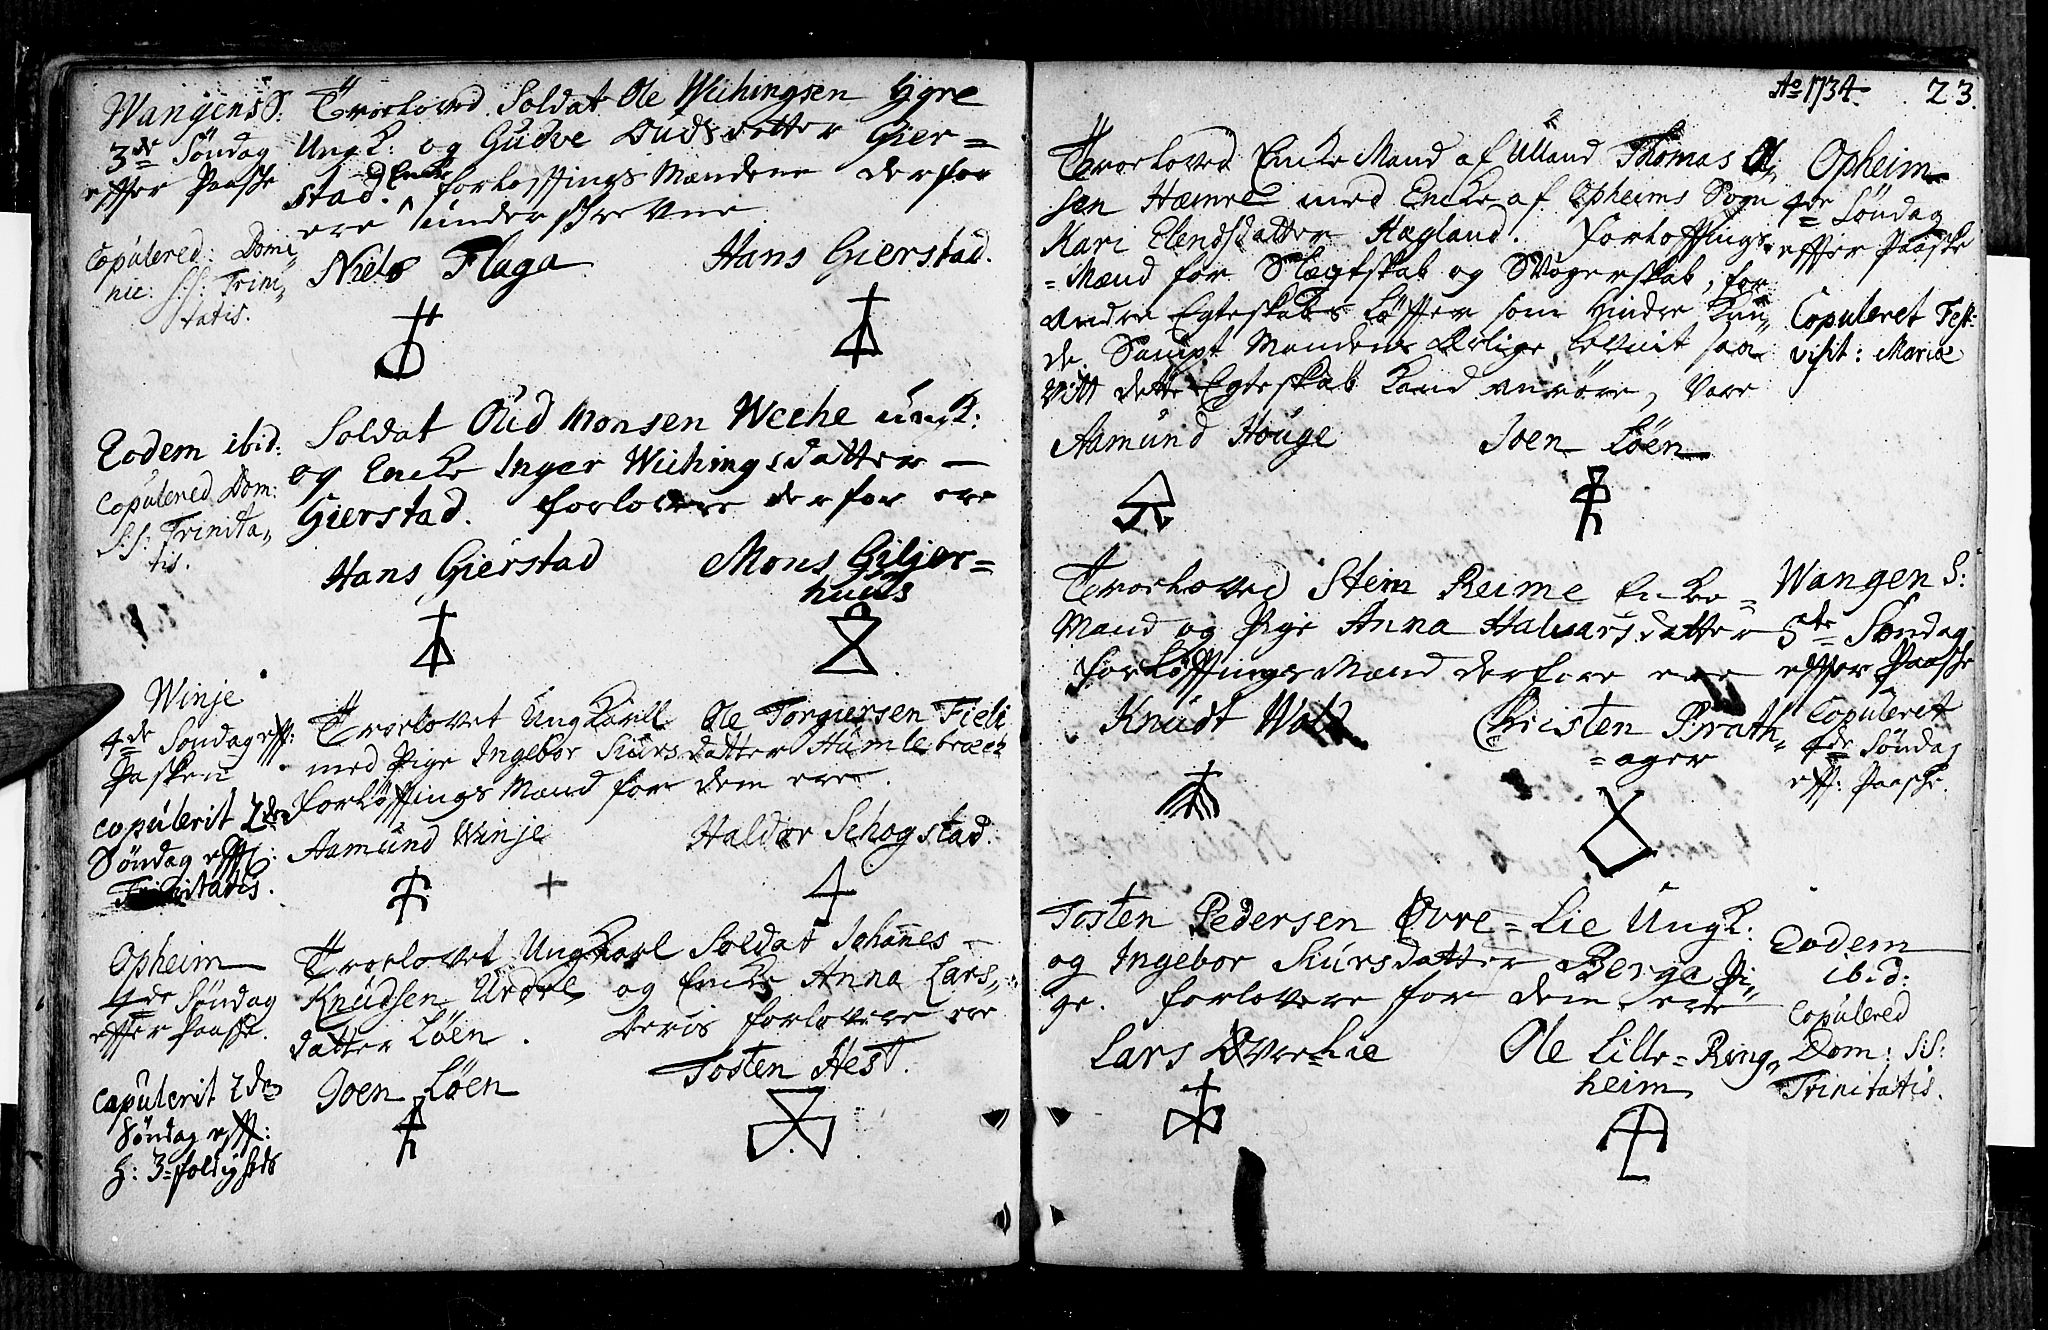 Wangens S:
3de Søndag
effter Paasche
Copulered: Domi„
nic: S:S: Trini„
tatis.
Troelovd Soldat Ole Wichingsen Ygre
Ungk: og Gudve Oudsdatter Gier=
stad. Encke forløfftings Mændene derfor
ere underskrevne
Niels Flaga Hans Gierstad.
Eodem ibid:
Copulered Dom:
S:S: Trinita„
tis.
Soldat Oud Monsen Weche Ungk:
og Encke Inger Wichingsdatter
Gierstad. forlovere derfor ere
Hans Gierstad Mons Giljer=
huus
Winje
4de Søndag eff:
Pasken
copulerit 2den
Søndag eff:
Trinitatis.
Troelovet Ungkarll Ole Torgiersen Fieli
med Pige Ingebor Siursdatter Humlebræck
forløfftings Mænd for dem ere.
Aamund Winje Haldor Schogstad.
Opheim
4de Søndag
effter Paasche.
copulerit 2den
Søndag eff:
H: 3-foldigheds
Troelovet Ungkarl Soldat Johannes
Knudsen Urdel og Encke Anna Lars„
datter Løen. Deris forlovere ere
Joen Løen Tosten Hest.
Ao 1734. 23.
Troeloved Encke Mand af Ulland Thomas Ol„
sen Hæmre med Encke af Opheims Sogn
Kari Elendsdatter Hægland. Forløfftings
=Mænd for Slegtskab og Svogerskab, for
andre Egteskabs Løffter som hindre kun„
de Sampt Mandens Ærlige Levnit saa
vitt dette Egteskab kand anrøre, Vare
Aamund Houge Joen Løen
Opheim
4de Søndag
effter Paasche
Copuleret Fest:
visit: Mariæ
Troeloved Stein Reime Encke=
Mand og Pige Anna Halvarsdatter
forløfftings Mænd derfore ere
Knudt Wold Christen Brath„
=ager
Wangen S:
5te Søndag
effter Paasche
Copuleret
4de Søndag
eff: Paasche.
Tosten Pedersen Øvre=Lie Ungk:
og Ingebor Siursdatter Berga Pi„
ge. forlovere for dem ere
Lars Øvre Lie Ole Lille=Ring„
heim
Eodem
ibid:
Copulered
Dom: S:S:
Trinitatis.